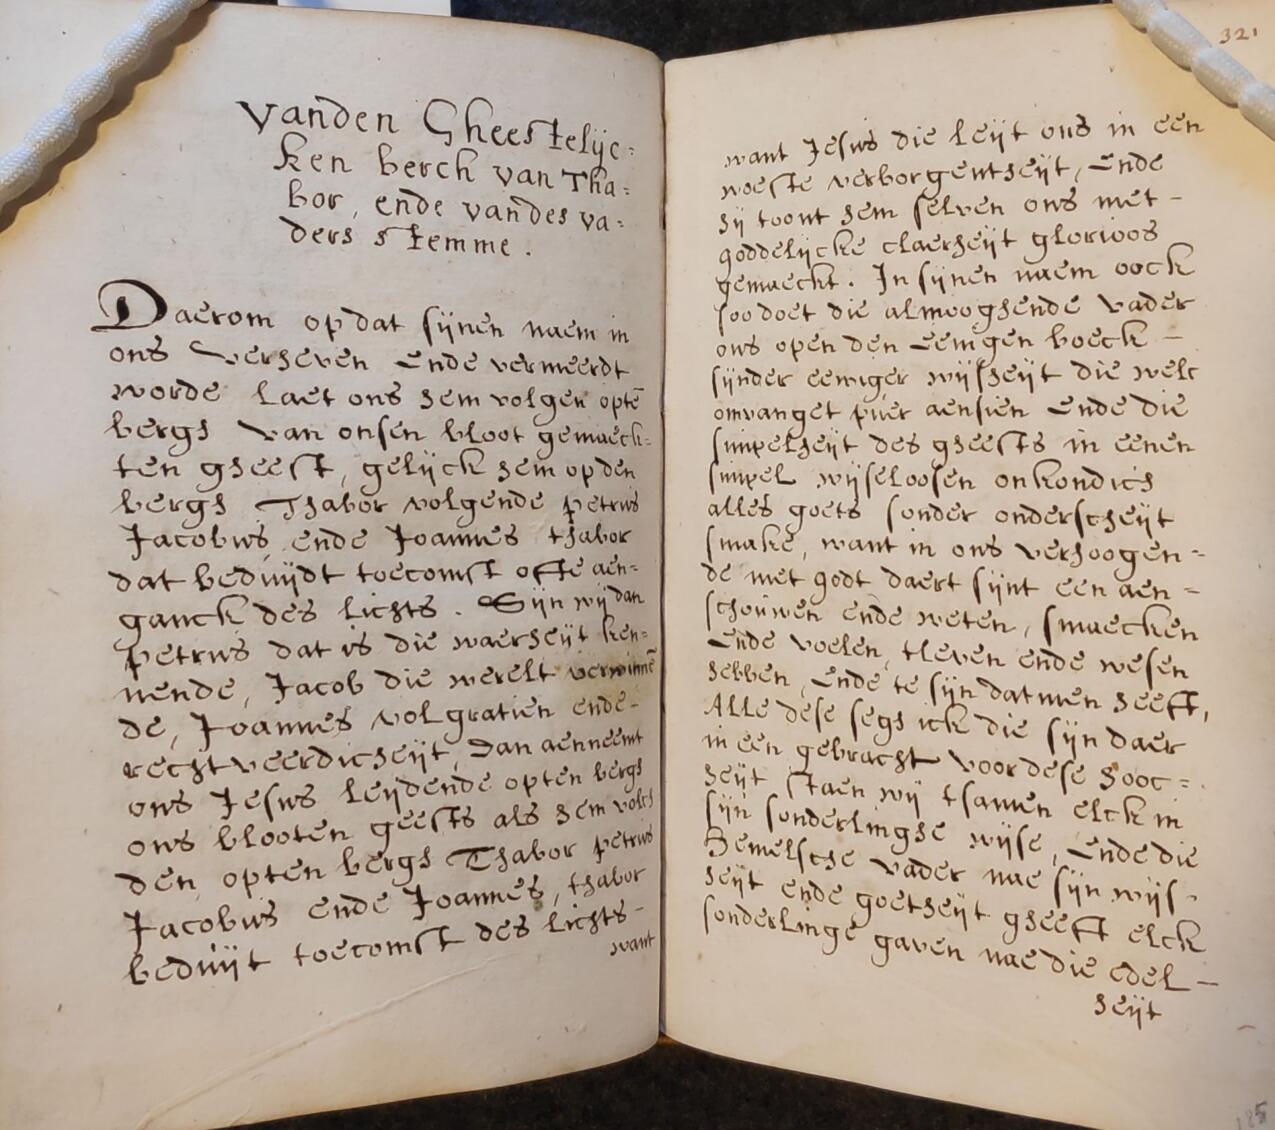 Vanden Gheestelijc=
ken berch van Tha=
bor, ende van des va=
ders stemme.
Daerom op dat sijnen naem in
ons Verheven Ende vermeerdt
worde laet ons hem volgen optē
bergh van onsen bloot gemaeck=
ten gheest, gelijck hem op den
bergh Thabor volgende petrus
Jacobus, ende Joannes thabor
dat beduijdt toecomst ofte aen=
ganck des lichts. Sijn wij dan
petrus dat is die waerheijt ken=
nende, Jacob die werelt verwinnē
de, Joannes vol gratien ende-
rechtveerdicheijt, dan aenneemt
ons Jesus leijdende opten bergh
ons blooten geests als hem volch
den opten bergh Thabor petrus
Jacobus ende Joannes, thabor
beduijt toecomst des lichts-
want
321
want Jesus die leijt ons in een
woeste verborgentheijt, Ende
hij toont hem selven ons met -
goddelijcke claerheijt glorioos
gemaeckt. In sijnen naem oock
soo doet die almooghende vader
ons open den Eenigen boeck -
sijnder eewiger wijsheijt die welc
omvanget puer aensien Ende die
simpelheijt des gheests in eenen
simpel wijseloosen onkondich
alles goets sonder onderscheijt
smake, want in ons verhoogen=
de met godt daert sijnt een aen=
schouwen ende weten, smaecken
Ende voelen, tleven ende wesen
hebben, Ende te sijn datmen heeft,
Alle dese segh ick die sijn daer
in een gebracht voor dese hooc=
heijt staen wij tsamen elck in
sijn sonderlinghe wijse, Ende die
Hemelsche vader nae sijn wijs-
heijt ende goetheijt gheeft elck
sonderlinge gaven nae die edel-
heijt
185